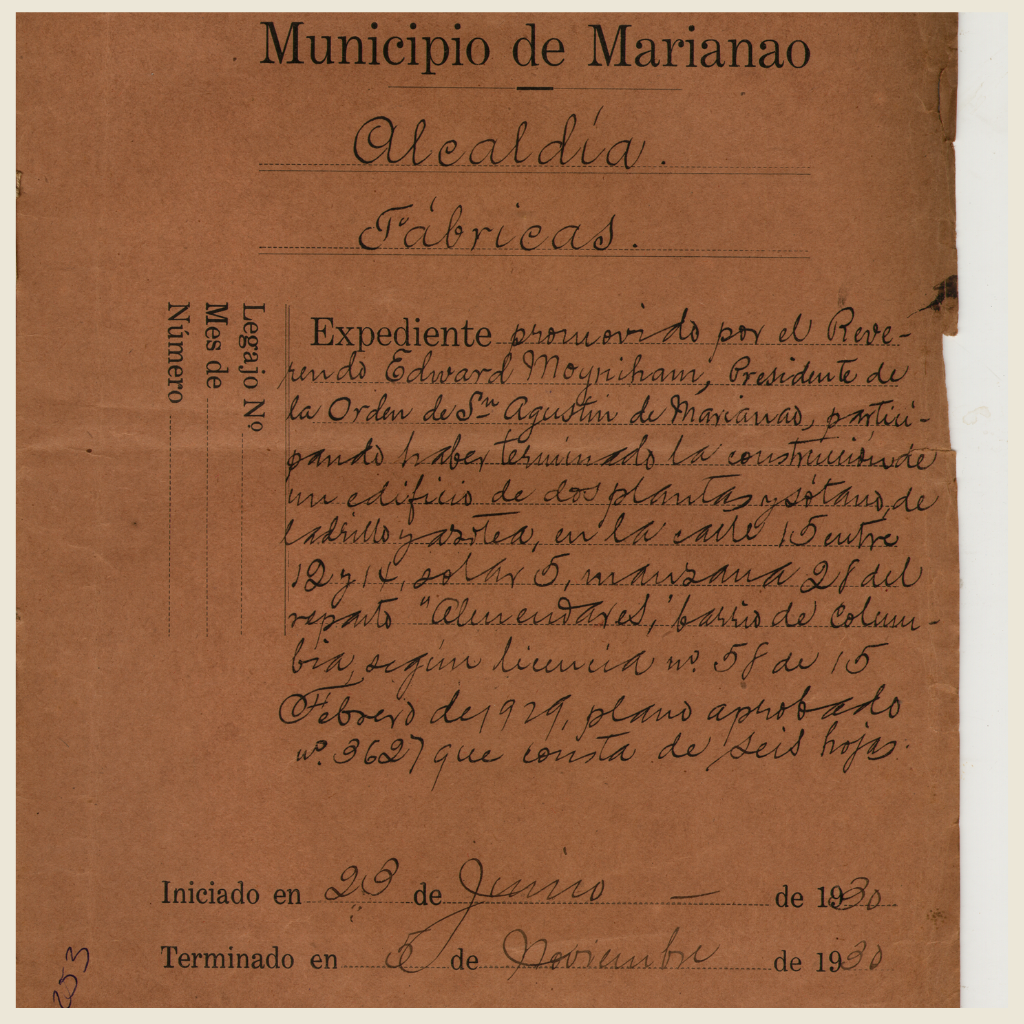 Municipio de Marianao
Alcaldía.
Fábricas.
Legajo Nº
Mes de
Número
Expediente promovido por el Reve-
rendo Edward Moyniham, Presidente de
la Orden de Sn Agustin de Marianao, partici-
pando haber terminado la construcción de
un edificio de dos plantas y sótano, de
ladrillo y azotea, en la calle 15 entre
12 y 14, solar 5, manzana 28 del
reparto "Almendares," barrio de Colum-
bia, según licencia nº. 58 de 15
Febrero de 1929, plano aprobado
nº. 3627 que consta de seis hojas.
Iniciado en 23 de Junio — de 1930
Terminado en 5 de Noviembre de 1930
253